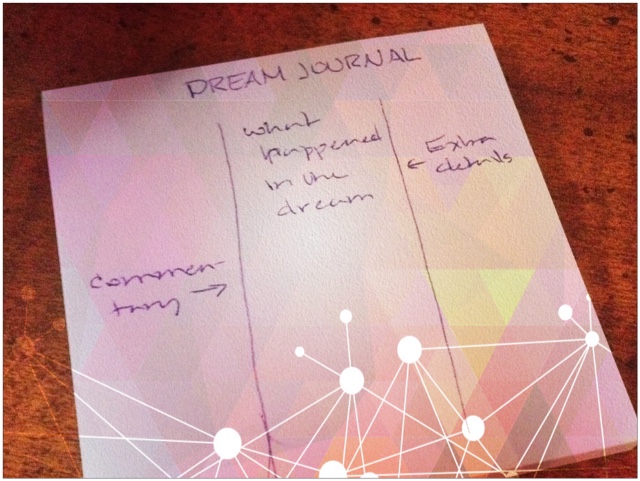 DREAM JOURNAL
what
happened
in the
dream
← Extra
details
commen-
tary →